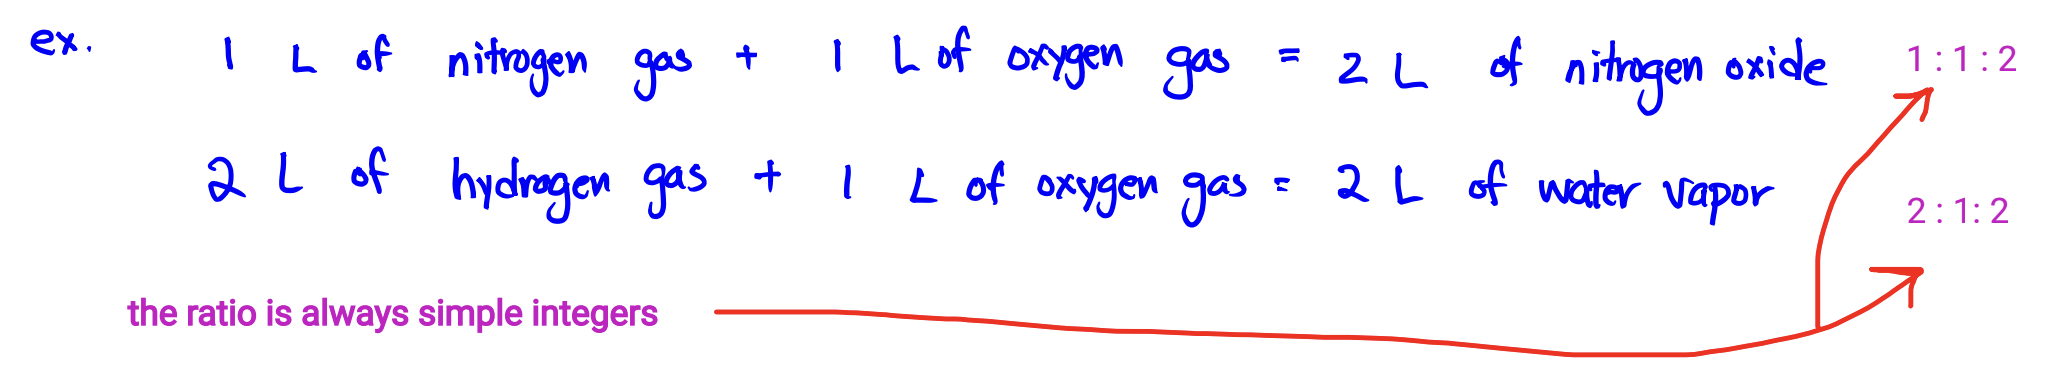 ex. 1 L of nitrogen gas + 1 L of oxygen gas = 2 L of nitrogen oxide 1 : 1 : 2
2 L of hydrogen gas + 1 L of oxygen gas = 2 L of water vapor 2 : 1 : 2
the ratio is always simple integers